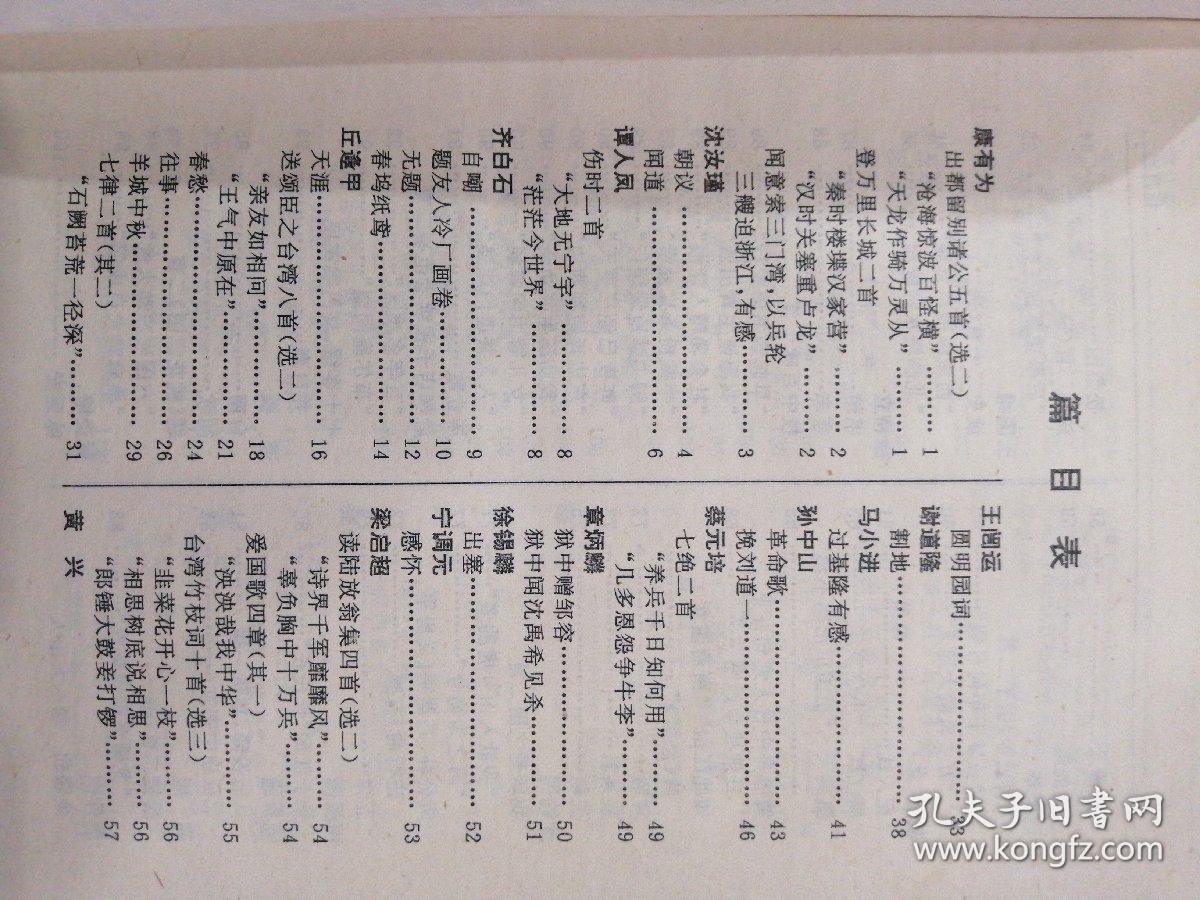 篇目表
康有为
出都留别诸公五首(选二)
“沧海惊波百怪横”……1
“天龙作骑万灵从”……1
登万里长城二首
“秦时楼堞汉家营”……2
“汉时关塞重卢龙”……2
闻意索三门湾,以兵轮
三艘迫浙江,有感……3
沈汝瑾
朝议……4
闻道……6
谭人凤
伤时二首
“大地无宁宇”……8
“茫茫今世界”……8
齐白石
自嘲……9
题友人冷厂画卷……10
无题……12
春坞纸鸢……14
丘逢甲
天涯……16
送颂臣之台湾八首(选二)
“亲友如相问”……18
“王气中原在”……21
春愁……24
往事……26
羊城中秋……29
七律二首(其二)
“石阙苔荒一径深”……31
王闿运
圆明园词……33
谢道隆
割地……38
马小进
过基隆有感……41
孙中山
革命歌……43
挽刘道一……46
蔡元培
七绝二首
“养兵千日知何用”……49
“几多恩怨争牛李”……49
章炳麟
狱中赠邹容……50
狱中闻沈禹希见杀……51
徐锡麟
出塞……52
宁调元
感怀……53
梁启超
读陆放翁集四首(选二)
“诗界千年靡靡风”……54
“辜负胸中十万兵”……54
爱国歌四章(其一)
“泱泱哉我中华”……55
台湾竹枝词十首(选三)
“韭菜花开心一枝”……56
“相思树底说相思”……56
“郎锤大鼓妾打锣”……57
黄兴
孔夫子旧书网
www.kongfz.com